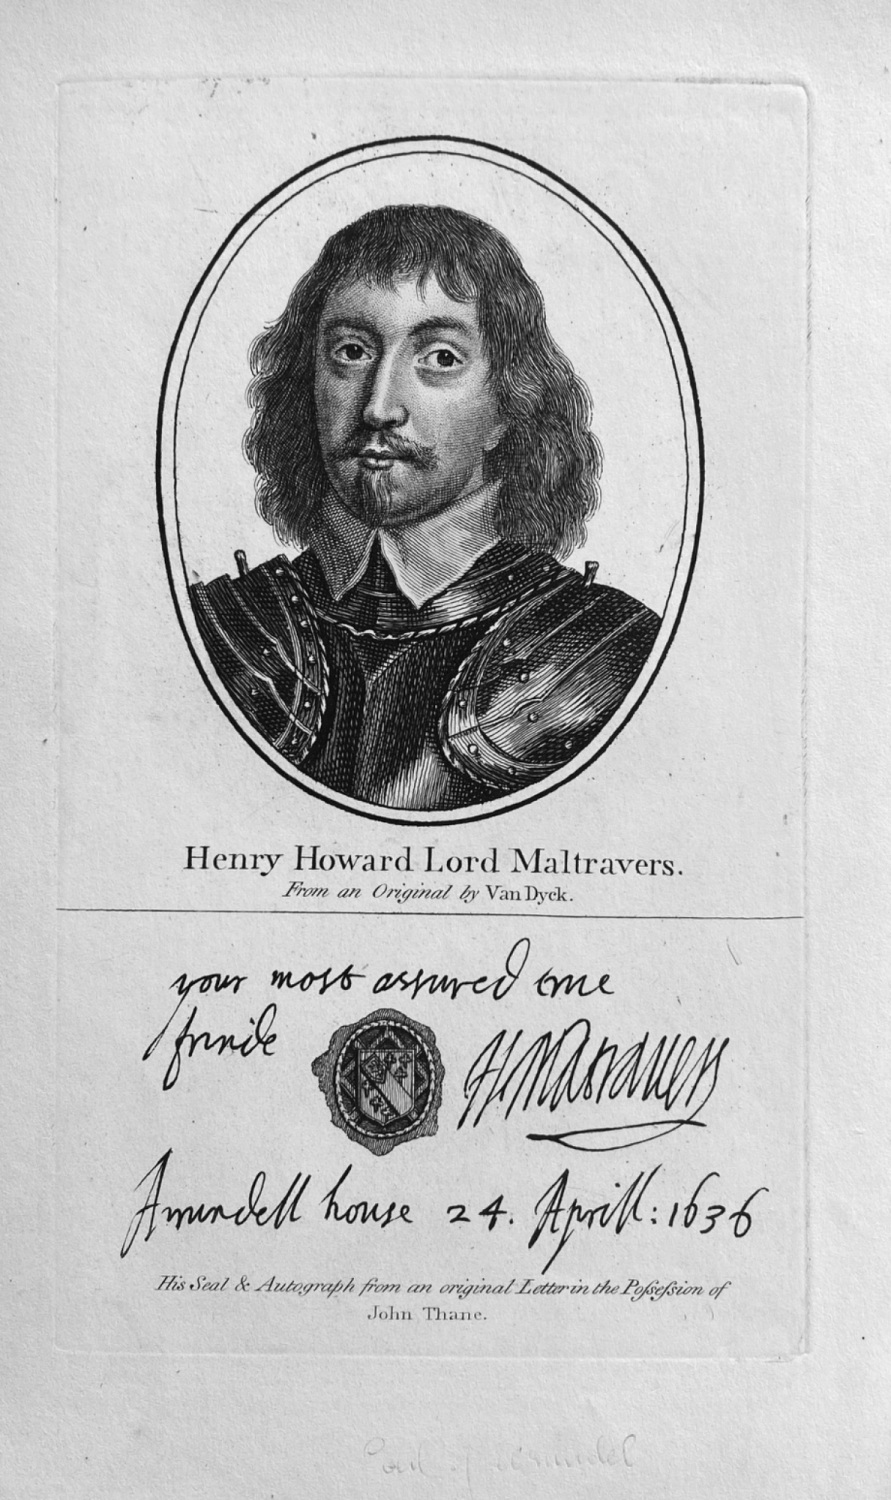 Henry Howard Lord Maltravers.
From an Original by Van Dyck.
your most assured true
frinde
HMaltravers
Arundell house 24. Aprill: 1636
His Seal & Autograph from an original Letter in the Poſseſsion of
John Thane.
Earl of Arundel